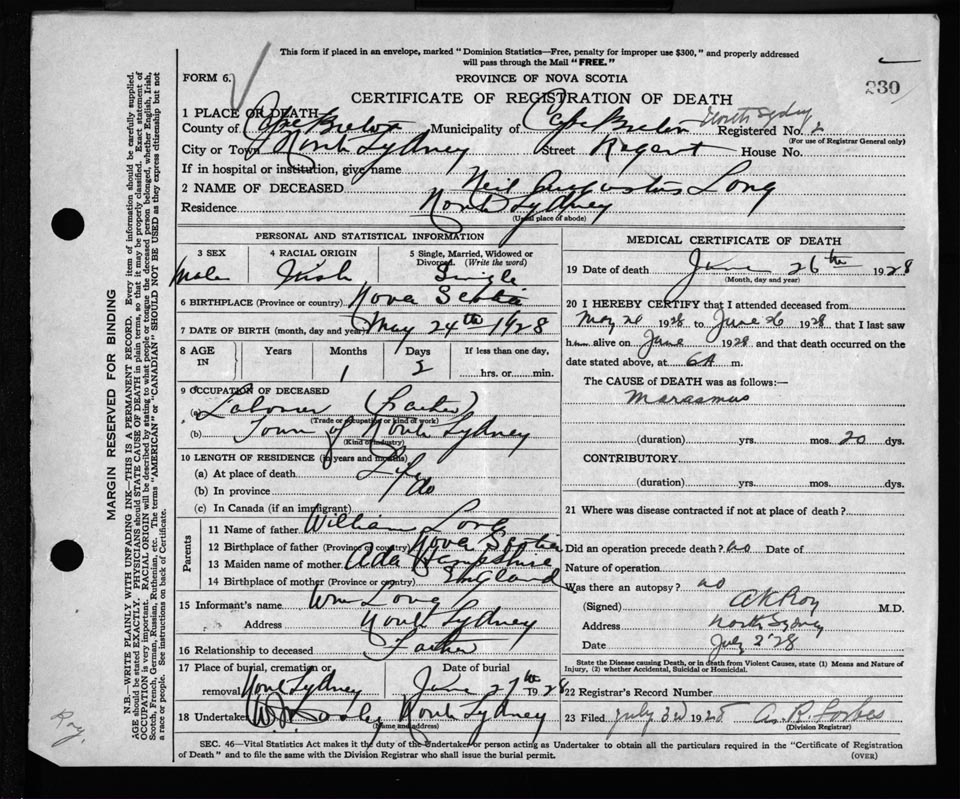 This form if placed in an envelope, marked "Dominion Statistics—Free, penalty for improper use $300," and properly addressed
will pass through the Mail "FREE."
FORM 6.
PROVINCE OF NOVA SCOTIA
230
CERTIFICATE OF REGISTRATION OF DEATH
1 PLACE OF DEATH
North Sydney
County of Cape Breton Municipality of Cape Breton Registered No. 2
(For use of Registrar General only)
City or Town North Sydney Street Regent House No.
If in hospital or institution, give name
2 NAME OF DECEASED Neil Augustus Long
Residence North Sydney
(Usual place of abode)
PERSONAL AND STATISTICAL INFORMATION
3 SEX 4 RACIAL ORIGIN 5 Single, Married, Widowed or Divorced. (Write the word)
Male Irish Single
6 BIRTHPLACE (Province or country) Nova Scotia
7 DATE OF BIRTH (month, day and year) May 24th 1928
8 AGE IN Years Months Days If less than one day,
1 2 hrs. or min.
9 OCCUPATION OF DECEASED
(a) Laborer (Father)
(Trade or occupation or kind of work)
(b) Town of North Sydney
(Kind of industry)
10 LENGTH OF RESIDENCE (in years and months)
(a) At place of death Life
(b) In province do
(c) In Canada (if an immigrant)
Parents
11 Name of father William Long
12 Birthplace of father (Province or country) Nova Scotia
13 Maiden name of mother Ada Hampshire
14 Birthplace of mother (Province or country) England
15 Informant's name Wm Long
Address North Sydney
16 Relationship to deceased Father
17 Place of burial, cremation or removal North Sydney
Date of burial June 27th 1928
18 Undertaker North Sydney
(Name and address)
MEDICAL CERTIFICATE OF DEATH
19 Date of death June 26th 1928
(Month, day and year)
20 I HEREBY CERTIFY that I attended deceased from
May 26 1928 to June 26 1928 that I last saw
him alive on June 1928 and that death occurred on the
date stated above, at 6A m.
The CAUSE of DEATH was as follows:—
Marasmus
(duration) yrs. mos. 20 dys.
CONTRIBUTORY
(duration) yrs. mos. dys.
21 Where was disease contracted if not at place of death?
Did an operation precede death? no Date of
Nature of operation
Was there an autopsy? no
(Signed) A K Roy M.D.
Address North Sydney
Date July 2 28
State the Disease causing Death, or in death from Violent Causes, state (1) Means and Nature of
Injury, (2) whether Accidental, Suicidal or Homicidal.
22 Registrar's Record Number
23 Filed July 3rd 1928 A. R. Forbes
(Division Registrar)
SEC. 46—Vital Statistics Act makes it the duty of the Undertaker or person acting as Undertaker to obtain all the particulars required in the "Certificate of Registration
of Death" and to file the same with the Division Registrar who shall issue the burial permit.
(OVER)
MARGIN RESERVED FOR BINDING
N.B.—WRITE PLAINLY WITH UNFADING INK—THIS IS A PERMANENT RECORD. Every item of information should be carefully supplied.
AGE should be stated EXACTLY. PHYSICIANS should STATE CAUSE OF DEATH in plain terms, so that it may be properly classified. Exact statement of
OCCUPATION is very important. RACIAL ORIGIN will be described by stating to what people or tongue the deceased person belonged, whether English, Irish,
Scotch, French, German, Russian, Ruthenian, etc. The terms "AMERICAN" or "CANADIAN" SHOULD NOT BE USED as they express citizenship but not
a race or people. See instructions on back of Certificate.
Roy